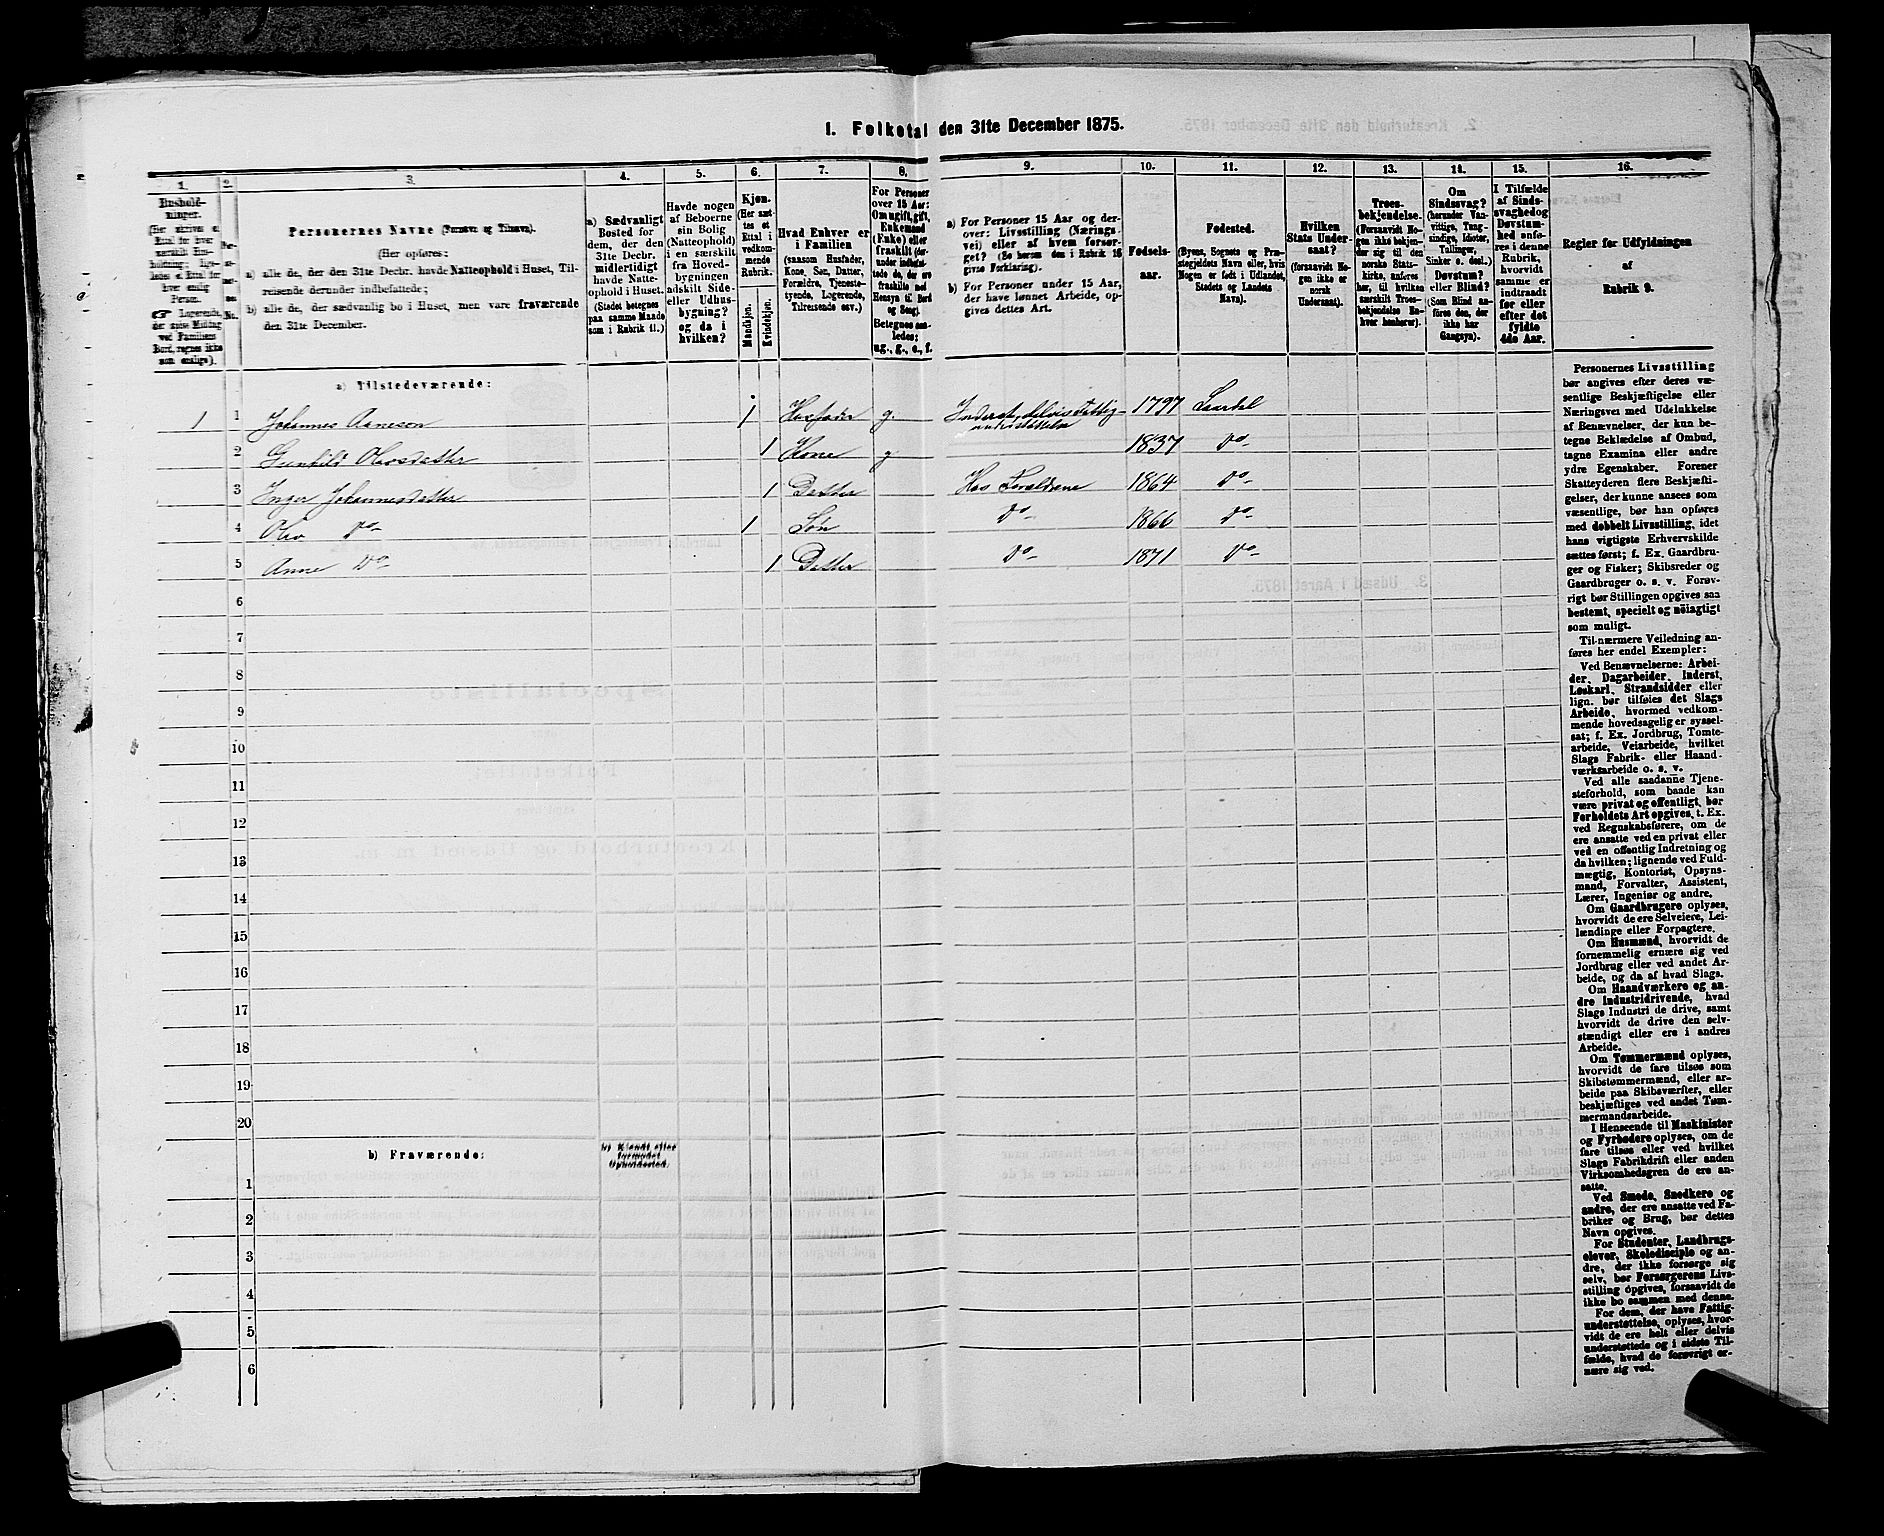 1. Folketal den 31te December 1875.
1.
2.
3.
4.
5.
6.
7.
8.
9.
10.
11.
12.
13.
14.
15.
16.
Personernes Navne (Fornavn og Tilnavn).
(Her opføres:
a) alle de, der den 31te Decbr. havde Natteophold i Huset, Tilreisende derunder indbefattede;
b) alle de, der sædvanlig bo i Huset, men vare fraværende den 31te December.
a) Sædvanligt
Bosted for
dem, der den
31te Decbr.
midlertidigt
havde Natteophold
i Huset.
(Stedet betegnes
paa samme Maade
som i Rubrik 11.)
Havde nogen
af Beboerne
sin Bolig
(Natteophold)
i en særskilt
fra Hovedbygningen
adskilt Side-
eller Udhusbygning?
og da i
hvilken?
Kjøn.
(Her sættes
et
Ettal i
vedkommende
Rubrik.
Mandkjøn.
Kvindekjøn.
Hvad Enhver er
i Familien
(saasom Husfader,
Kone, Søn, Datter,
Forældre, Tjenestetyende,
Logerende,
Tilreisende osv.)
For Personer
over 15 Aar:
Om ugift, gift,
Enkemand
(Enke) eller
fraskilt
Betegnes saaledes:
ug., g., e., f.
a) For Personer 15 Aar og derover: Livsstilling (Næringsvei) eller af hvem forsørget? (Se herom den i Rubrik 16 givne Forklaring).
b) For Personer under 15 Aar, der have lønnet Arbeide, opgives dettes Art.
Fødsels-
aar.
Fødested.
(Byens, Sognets og Præstegjeldets
Navn eller, hvis
Nogen er født i Udlandet,
Stedets og Landets
Navn).
Hvilken
Stats Undersaat?
(forsaavidt Nogen
ikke er
norsk
Undersaat).
Troesbekjendelse.
(Forsaavidt Nogen
ikke bekjender
sig til den
norske Statskirke,
anføres
her, til hvilken
særskilt Troesbekjendelse
Enhver
henhører).
Om
Sindssvag?
(herunder Vanvittige,
Tungsindige,
Idioter,
Tullinger,
Sinker o. desl.)
Døvstum?
eller Blind?
(Som Blind anføres
den, der
ikke har
Gangsyn).
I Tilfælde
af Sindssvaghed
og
Døvstumhed
anføres
i denne
Rubrik,
hvorvidt
samme er
indtraadt
før eller
efter det
fyldte
4de Aar.
Regler for Udfyldningen
af
Rubrik 9.
a) Tilstedeværende:
1 1 Johannes Aaneson 1 Husfader g. Inderst, delvis Fattig-
understøttelse 1797 Laurdal
2 Gunhild Olavsdatter 1 Kone g 1837 do
3 Inger Johannesdatter 1 Datter Hos Forældrene 1864 do
4 Olav do 1 Søn do 1866 do
5 Anne do 1 Datter do 1871 do
6
7
8
9
10
11
12
13
14
15
16
17
18
19
20
b) Fraværende:
b) Kjendt eller
formodet
Opholdssted.
1
2
3
4
5
6
Personernes Livsstilling
bør angives efter deres væsentlige
Beskjæftigelse eller
Næringsvei med Udelukkelse
af Benævnelser, der kun betegne
Beklædelse af Ombud,
tagne Examina eller andre
ydre Egenskaber. Forener
Skatteyderen flere Beskjæftigelser,
der kunne ansees som
væsentlige, bør han opføres
med dobbelt Livsstilling, idet
hans vigtigste Erhvervskilde
sættes først; f. Ex. Gaardbruger
og Fisker; Skibsreder og
Gaardbruger o. s. v. Forøvrigt
bør Stillingen opgives saa
bestemt, specielt og nöiagtigt
som muligt.
Til nærmere Veiledning anføres
her endel Exempler:
Ved Benævnelserne: Arbeider,
Dagarbeider, Inderst,
Løskarl, Strandsidder eller
lign. bør tilføies det Slags
Arbeide, hvormed vedkommende
hovedsagelig er sysselsat;
f. Ex. Jordbrug, Tomtearbeide,
Veiarbeide, hvilket
Slags Fabrik- eller Haandværksarbeide
o. s. v.
Ved alle saadanne Tjenesteforhold,
som baade kan
være privat og offentligt, bør
Forholdets Art opgives, t. Ex.
ved Regnskabsførere, om de
ere ansatte ved en privat eller
ved en offentlig Indretning og
da hvilken; lignende ved Fuldmægtig,
Kontorist, Opsynsmand,
Forvalter, Assistent,
Lærer, Ingeniør og andre.
Om Gaardbrugere oplyses,
hvorvidt de ere Selveiere, Leilændinge
eller Forpagtere.
Om Husmænd, hvorvidt de
fornemmelig ernære sig ved
Jordbrug eller ved andet Arbeide,
og da af hvad Slags.
Om Haandværkere og andre
Industridrivende, hvad
Slags Industri de drive, samt
hvorvidt de drive den selvstændigt
eller ere i andres
Arbeide.
Om Tømmermænd oplyses,
hvorvidt de fare tilsøs som
Skibstømmermænd, eller arbeide
paa Skibsværfter, eller
beskjæftiges ved andet Tømmermandsarbeide.
I Henseende til Maskinister
og Fyrbødere oplyses, om de
fare tilsøs eller ved hvilket
Slags Fabrikdrift eller anden
Virksomhedsgren de ere ansatte.
Ved Smede, Snedkere og
andre, der ere ansatte ved Fabriker
og Brug, bør dettes
Navn opgives.
For Studenter, Landbrugselever,
Skoledisciple og andre,
der ikke forsørge sig
selv, bør Forsørgerens Livsstilling
opgives, forsaavidt de
ikke bo sammen med denne.
For dem, der have Fattigunderstøttelse,
oplyses, hvorvidt
de ere helt eller delvis
understøttede og i sidste Tilfælde,
hvad de forøvrigt ernære
sig ved.